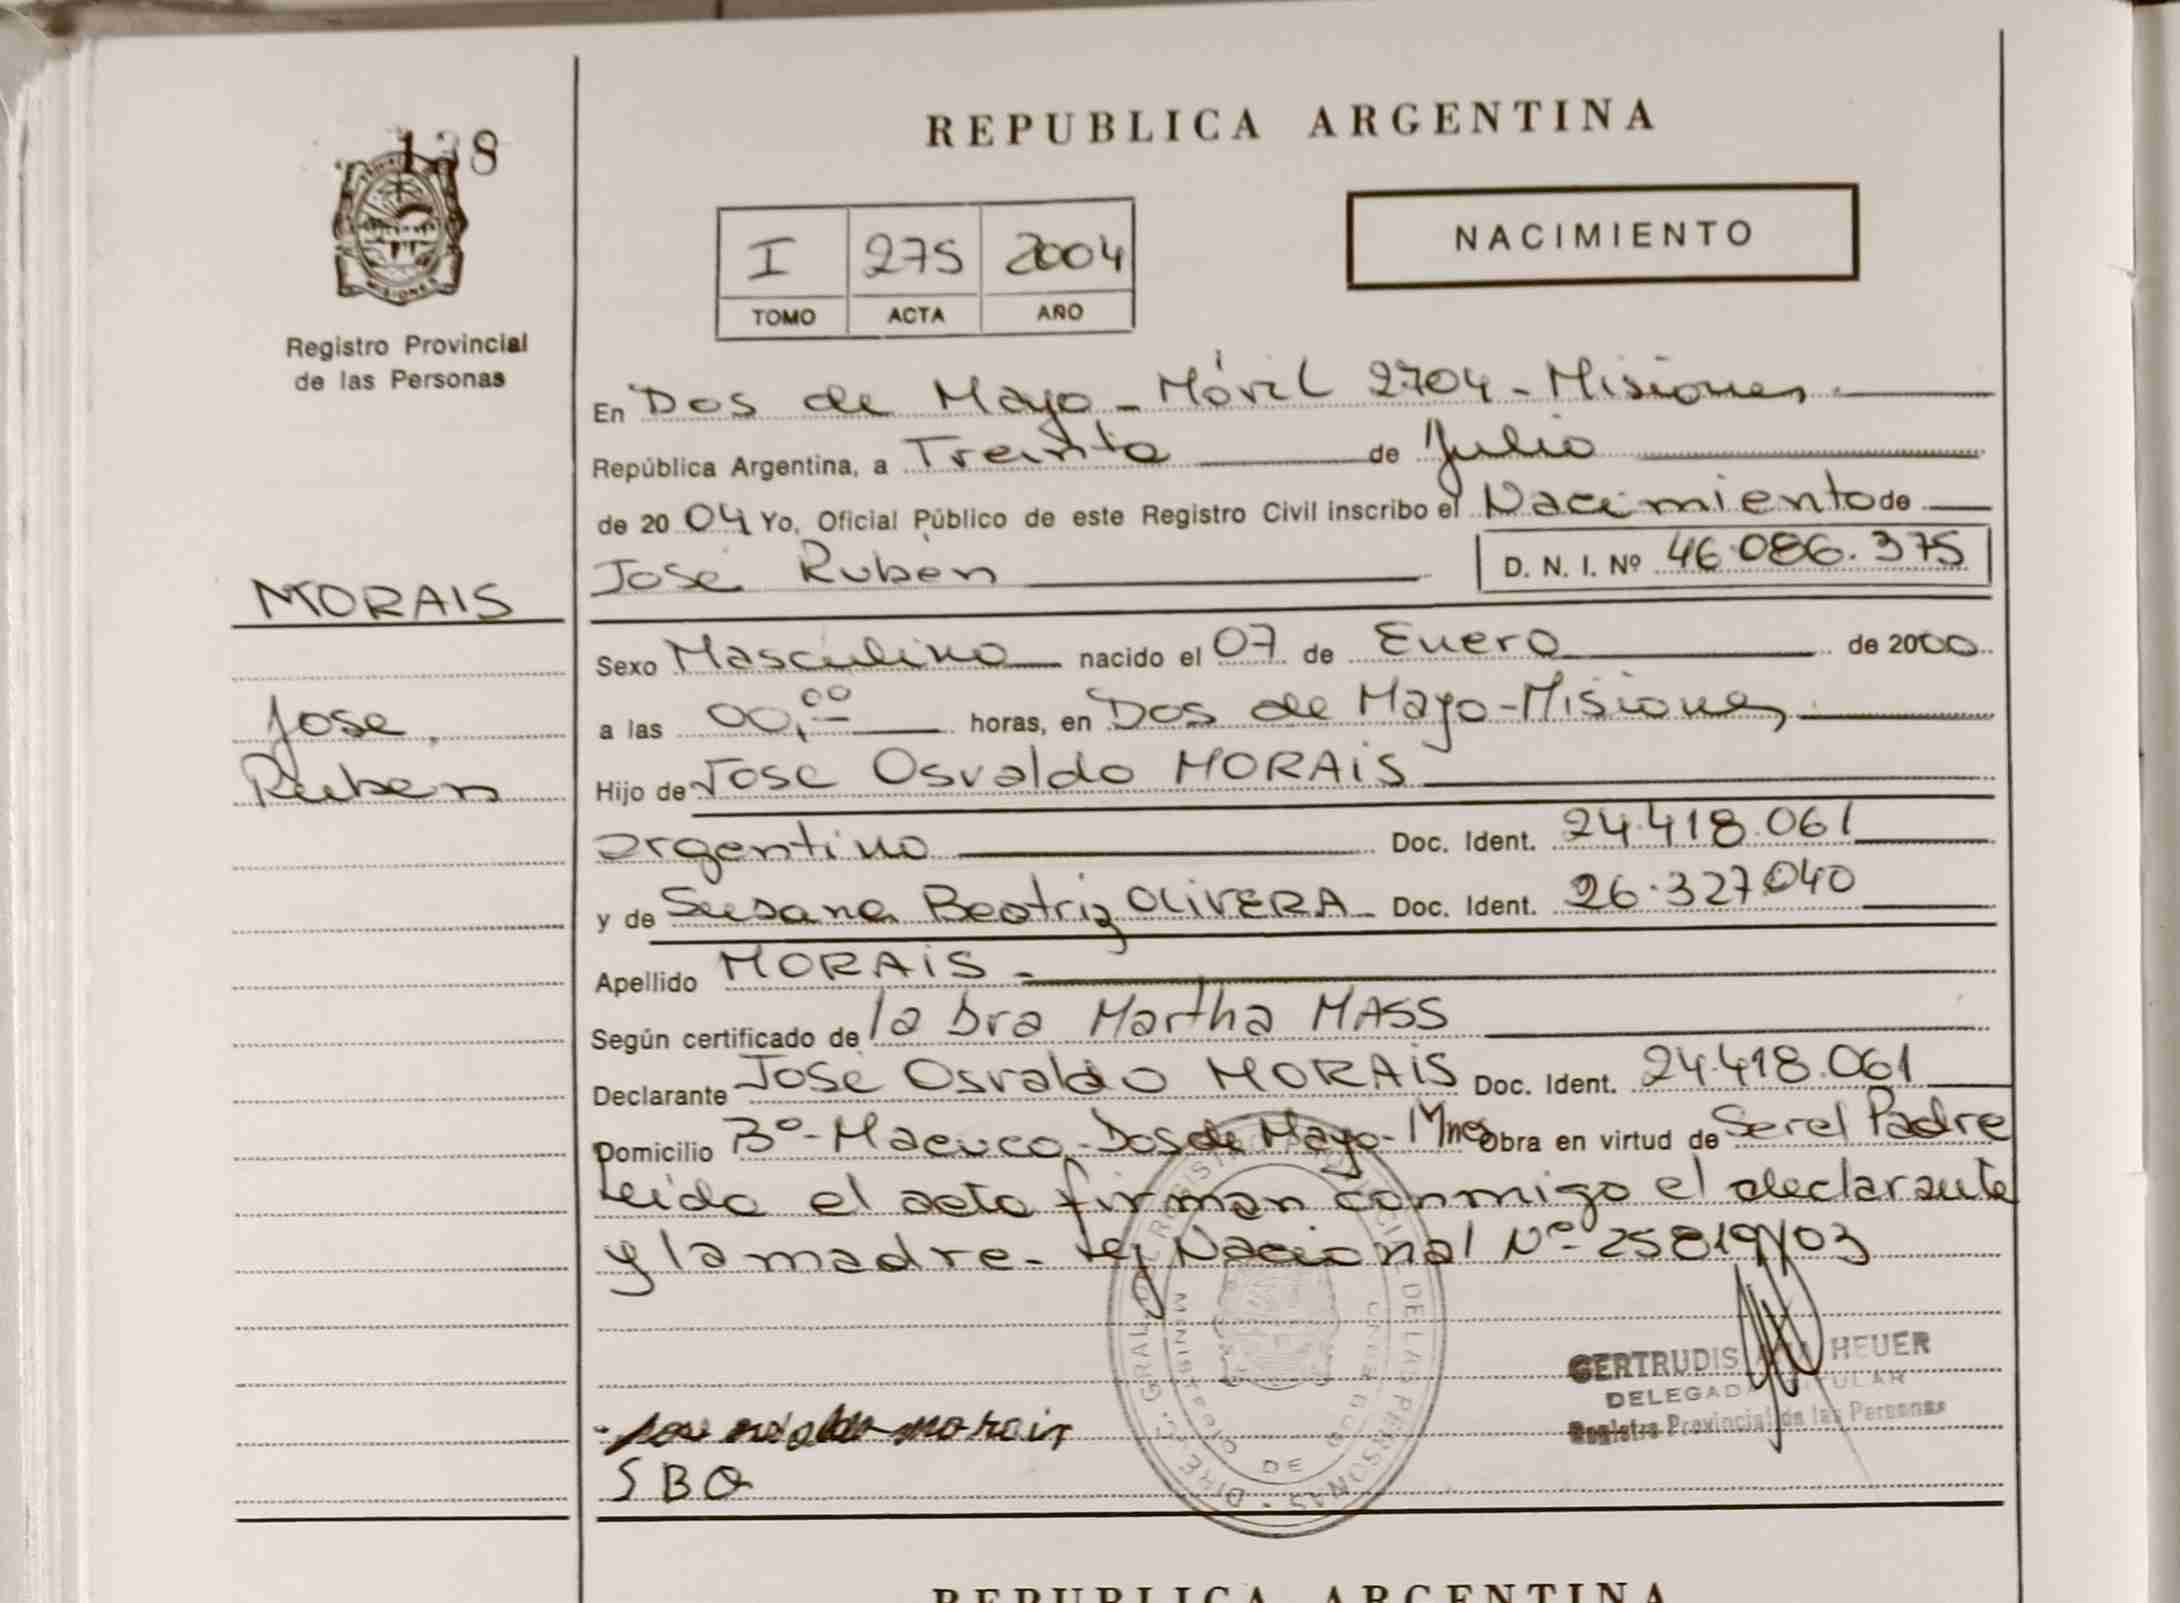 138
MISIONES
Registro Provincial
de las Personas
MORAIS
Jose
Ruben
REPUBLICA ARGENTINA
I 275 2004
TOMO ACTA AÑO
NACIMIENTO
En Dos de Mayo - Móvil 2704 - Misiones
República Argentina, a Treinta de Julio
de 2004 Yo, Oficial Público de este Registro Civil inscribo el Nacimiento de
José Rubén D. N. I. Nº 46.086.375
Sexo Masculino nacido el 07 de Enero de 2000
a las 00,00 horas, en Dos de Mayo - Misiones
Hijo de José Osvaldo MORAIS
argentino Doc. Ident. 24.418.061
y de Susana Beatriz OLIVERA Doc. Ident. 26.327.040
Apellido MORAIS -
Según certificado de la Dra Martha MASS
Declarante José Osvaldo MORAIS Doc. Ident. 24.418.061
Domicilio Bº - Macuco - Dos de Mayo - Mnes Obra en virtud de Ser el Padre
Leida el acta firman conmigo el declarante
y la madre - Ley Nacional Nº 25819/03
GERTRUDIS HEUER
DELEGADA TITULAR
Registro Provincial de las Personas
morais
SBO
MINISTERIO DE
REPUBLICA ARGENTINA